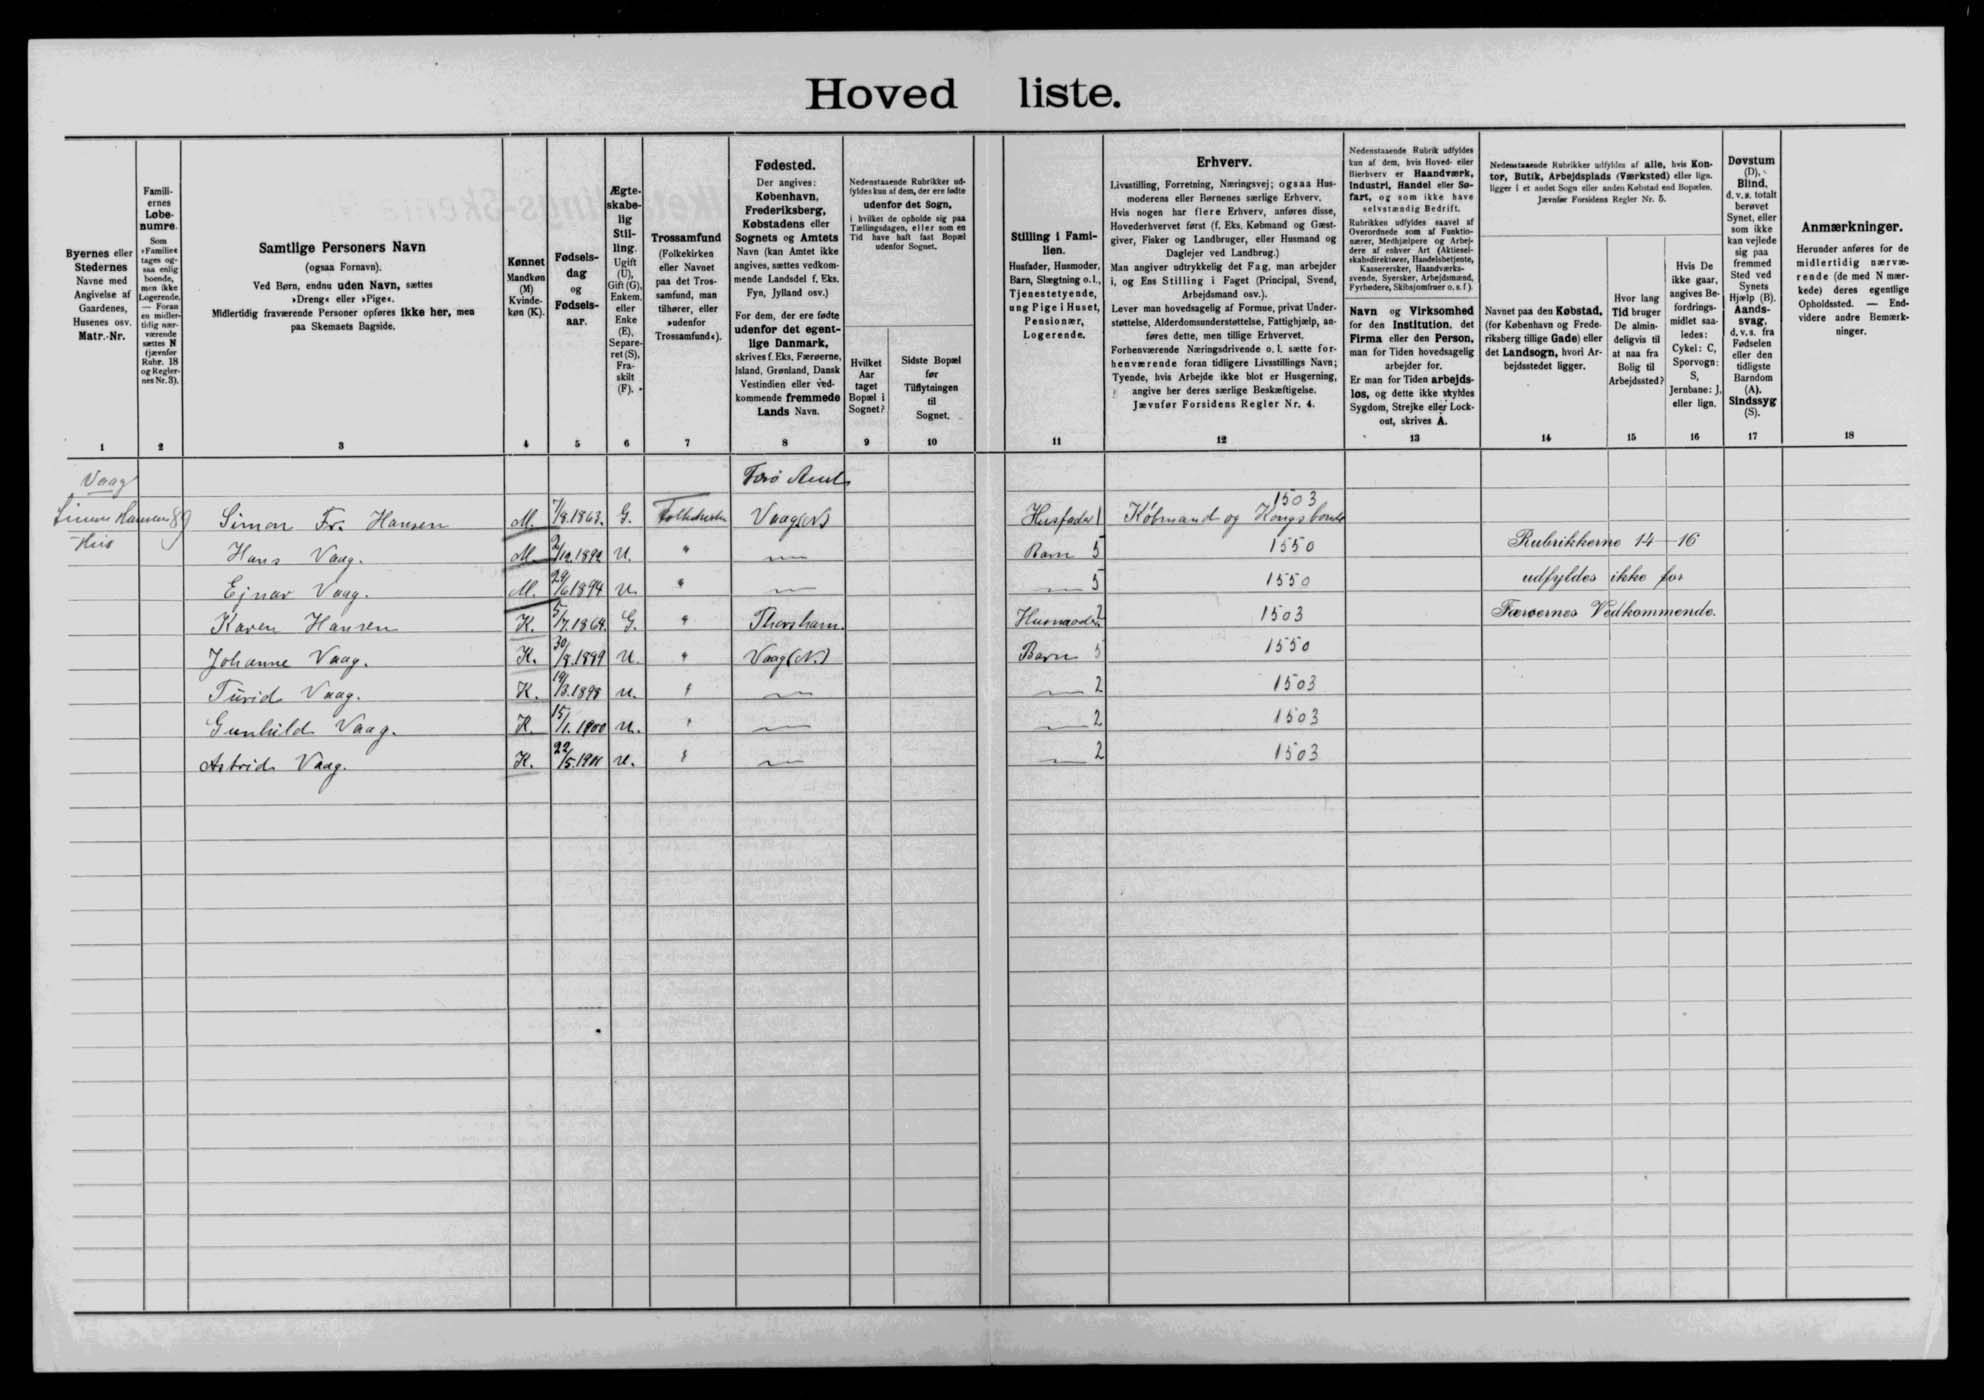 Hoved liste.
Byernes eller Stedernes Navne med Angivelse af Gaardenes, Husenes osv. Matr.-Nr.
Famili-ernes Løbe-numre.
Som »Familie« tages og-saa enlig boende, men ikke Logerende. — Foran en midler-tidig nær-værende sættes N (jævnfør Rubr. 18 og Regler-nes Nr. 3).
Samtlige Personers Navn
(ogsaa Fornavn).
Ved Børn, endnu uden Navn, sættes
»Dreng« eller »Pige«.
Midlertidig fraværende Personer opføres ikke her, men
paa Skemaets Bagside.
Kønnet
Mandkøn (M) Kvinde-køn (K).
Fødsels-dag og Fødsels-aar.
Ægte-skabe-lig Stil-ling.
Ugift (U), Gift (G), Enkem. eller Enke (E), Separe-ret (S), Fra-skilt (F).
Trossamfund
(Folkekirken eller Navnet paa det Tros-samfund, man tilhører, eller »udenfor Trossamfund«).
Fødested.
Der angives:
København, Frederiksberg, Købstadens eller Sognets og Amtets Navn (kan Amtet ikke angives, sættes vedkom-mende Landsdel f. Eks. Fyn, Jylland osv.)
For dem, der ere fødte udenfor det egent-lige Danmark, skrives f. Eks. Færøerne, Island, Grønland, Dansk Vestindien eller ved-kommende fremmede Lands Navn.
Nedenstaaende Rubrikker ud-fyldes kun af dem, der ere fødte udenfor det Sogn, i hvilket de opholde sig paa Tællingsdagen, eller som en Tid have haft fast Bopæl udenfor Sognet.
Hvilket Aar taget Bopæl i Sognet?
Sidste Bopæl før Tilflytningen til Sognet.
Stilling i Fami-lien.
Husfader, Husmoder, Barn, Slægtning o. l., Tjenestetyende, ung Pige i Huset, Pensionær, Logerende.
Erhverv.
Livsstilling, Forretning, Næringsvej; ogsaa Hus-moderens eller Børnenes særlige Erhverv.
Hvis nogen har flere Erhverv, anføres disse, Hovederhvervet først (f. Eks. Købmand og Gæst-giver, Fisker og Landbruger, eller Husmand og Daglejer ved Landbrug.)
Man angiver udtrykkelig det Fag, man arbejder i, og Ens Stilling i Faget (Principal, Svend, Arbejdsmand osv.).
Lever man hovedsagelig af Formue, privat Under-støttelse, Alderdomsunderstøttelse, Fattighjælp, an-føres dette, men tillige Erhvervet.
Forhenværende Næringsdrivende o. l. sætte for-henværende foran tidligere Livsstillings Navn; Tyende, hvis Arbejde ikke blot er Husgerning, angive her deres særlige Beskæftigelse.
Jævnfør Forsidens Regler Nr. 4.
Nedenstaaende Rubrik udfyldes kun af dem, hvis Hoved- eller Bierhverv er Haandværk, Industri, Handel eller Sø-fart, og som ikke have selvstændig Bedrift.
Rubrikken udfyldes saavel af Overordnede som af Funktio-nærer, Medhjælpere og Arbej-dere af enhver Art (Aktiesel-skabsdirektører, Handelsbetjente, Kassererskker, Haandværks-svende, Syersker, Arbejdsmænd, Fyrbødere, Skibsjomfruer o. s. f.).
Navn og Virksomhed for den Institution, det Firma eller den Person, man for Tiden hovedsagelig arbejder for.
Er man for Tiden arbejds-løs, og dette ikke skyldes Sygdom, Strejke eller Lock-out, skrives A.
Nedenstaaende Rubrikker udfyldes af alle, hvis Kon-tor, Butik, Arbejdsplads (Værksted) eller lign. ligger i et andet Sogn eller anden Købstad end Bopælen. Jævnfør Forsidens Regler Nr. 5.
Navnet paa den Købstad, (for København og Frede-riksberg tillige Gade) eller det Landsogn, hvori Ar-bejdsstedet ligger.
Hvor lang Tid bruger De almin-deligvis til at naa fra Bolig til Arbejdssted?
Hvis De ikke gaar, angives Be-fordrings-midlet saa-ledes: Cykel: C, Sporvogn: S, Jernbane: J, eller lign.
Døvstum (D), Blind, d. v. s. totalt berøvet Synet, eller som ikke kan vejlede sig paa fremmed Sted ved Synets Hjælp (B). Aands-svag, d. v. s. fra Fødselen eller den tidligste Barndom (A). Sindssyg (S).
Anmærkninger.
Herunder anføres for de midlertidig nærvæ-rende (de med N mær-kede) deres egentlige Opholdssted. — End-videre andre Bemærk-ninger.
1 2 3 4 5 6 7 8 9 10 11 12 13 14 15 16 17 18
Vaag Færø Amt
Simon Hansens Hus 89 Simon Fr. Hansen M. 7/8.1863. G. Folkekirken Vaag (N) Husfader 1 Købmand og Kongsbonde 1503
Hans Vaag. M. 2/12.1892 U. " — Barn 5 1550 Rubrikkerne 14—16
Ejnar Vaag. M. 29/6 1894 U. " — — 5 1550 udfyldes ikke for
Karen Hansen K. 5/7.1864. G. " Thorshavn. Husmoder 2 1503 Færøernes Vedkommende.
Johanne Vaag. K. 30/8.1899 U. " Vaag (N.) Barn 5 1550
Turid Vaag. K. 19/3.1898 U. " — — 2 1503
Gunhild Vaag. K. 15/1.1900 U. " — — 2 1503
Astrid Vaag. K. 22/5.1901 U. " — — 2 1503